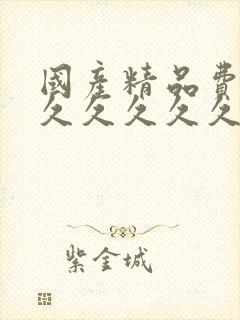 國產精品費
久久久久久
紫金城